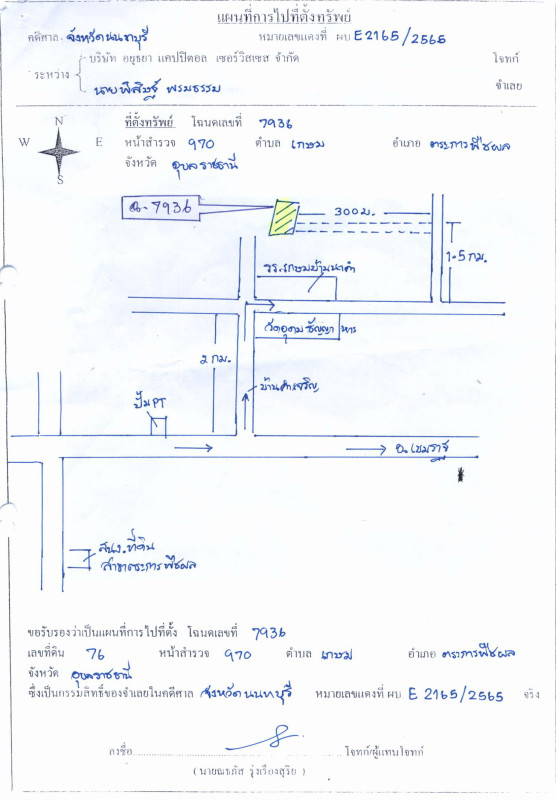 แผนที่การไปที่ตั้งทรัพย์
คดีศาล จังหวัดนนทบุรี หมายเลขแดงที่ ผบ E 2165/2565
ระหว่าง { บริษัท อยุธยา แคปปิตอล เซอร์วิสเซส จำกัด โจทก์
นายพิสิษฐ์ พรมธรรม จำเลย
N
W E
S
ที่ตั้งทรัพย์ โฉนดเลขที่ 7936
หน้าสำรวจ 970 ตำบล เกษม อำเภอ ตระการพืชผล
จังหวัด อุบลราชธานี
ฉ.7936
300 ม.
1.5 กม.
รร.เกษมบ้านนาคำ
วัดอุดมธัญญาหาร
2 กม.
บ้านคำเจริญ
ปั๊ม PT
อ.เขมราฐ
สนง.ที่ดิน
สาขาตระการพืชผล
ขอรับรองว่าเป็นแผนที่การไปที่ตั้ง โฉนดเลขที่ 7936
เลขที่ดิน 76 หน้าสำรวจ 970 ตำบล เกษม อำเภอ ตระการพืชผล
จังหวัด อุบลราชธานี
ซึ่งเป็นกรรมสิทธิ์ของจำเลยในคดีศาล จังหวัดนนทบุรี หมายเลขแดงที่ ผบ E 2165/2565 จริง
ลงชื่อ โจทก์/ผู้แทนโจทก์
( นายณธภัส รุ่งเรืองสุริย )